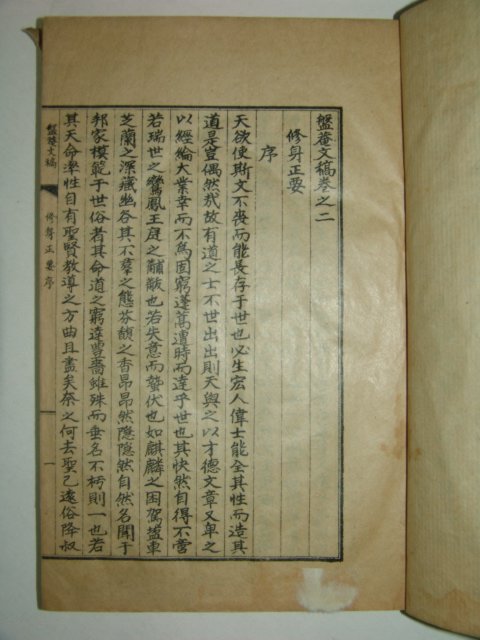 盤菴文稿卷之二
修身正要
序
天欲使斯文不喪而能長存于世也必生宏人偉士能全其性而造其
道是豈偶然哉故有道之士不世出出則天與之以才德文章又卑之
以經綸大業幸而不為固窮蓬蒿遭時而達乎世也其怏然自得不啻
若瑞世之鸞鳳王庭之黼黻也若失意而蟄伏也如麒麟之困駕鹽車
芝蘭之深藏幽谷其不羣之態芬馥之香昂昂然隱隱然自然名聞于
邦家模範于世俗者其命道之窮達豐嗇雖殊而垂名不朽則一也若
其天命率性自有聖賢教導之方曲且盡矣奈之何去聖已遠俗降叔
盤菴文稿
修身正要序
一